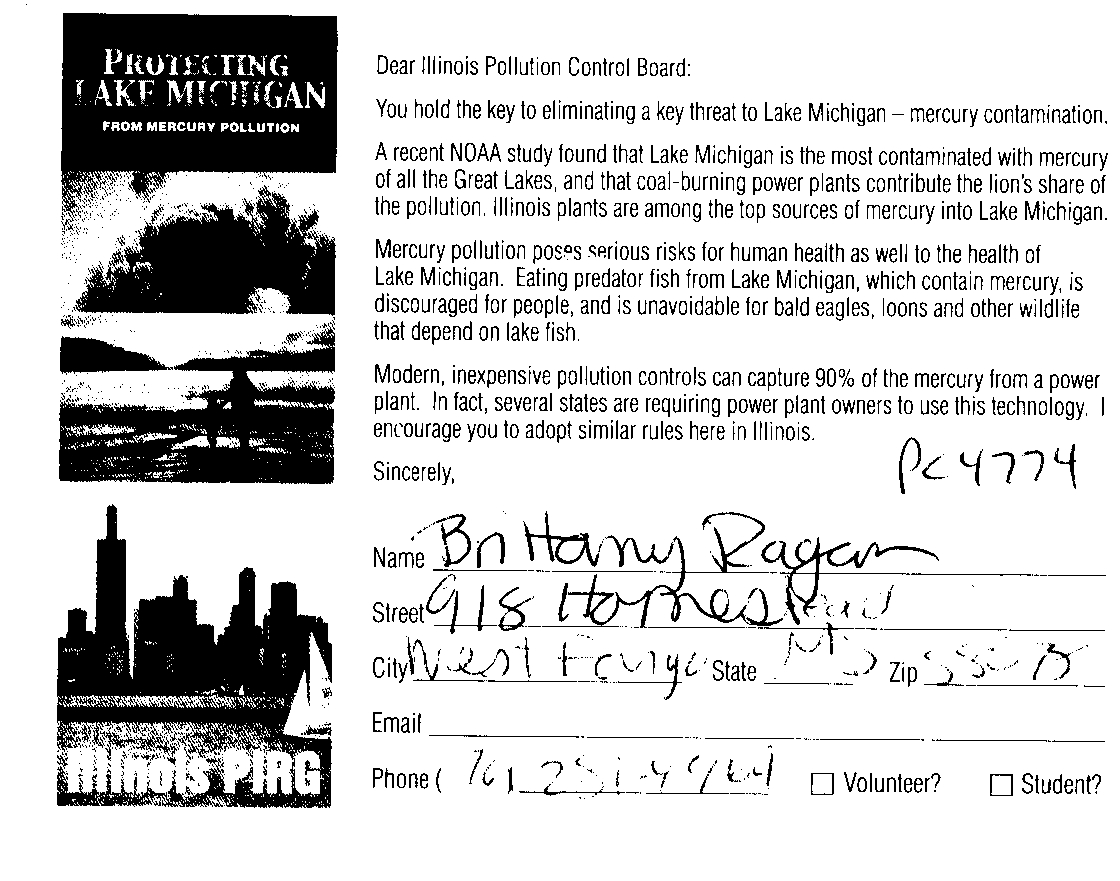 PROTECTING
LAKE MICHIGAN
FROM MERCURY POLLUTION
Illinois PIRG
Dear Illinois Pollution Control Board:
You hold the key to eliminating a key threat to Lake Michigan – mercury contamination.
A recent NOAA study found that Lake Michigan is the most contaminated with mercury
of all the Great Lakes, and that coal-burning power plants contribute the lion's share of
the pollution. Illinois plants are among the top sources of mercury into Lake Michigan.
Mercury pollution poses serious risks for human health as well to the health of
Lake Michigan. Eating predator fish from Lake Michigan, which contain mercury, is
discouraged for people, and is unavoidable for bald eagles, loons and other wildlife
that depend on lake fish.
Modern, inexpensive pollution controls can capture 90% of the mercury from a power
plant. In fact, several states are requiring power plant owners to use this technology. I
encourage you to adopt similar rules here in Illinois.
Sincerely,
PC4774
Name Brittany Ragan
Street 918 Homestead
City West State Zip
Email
Phone (
Volunteer? Student?